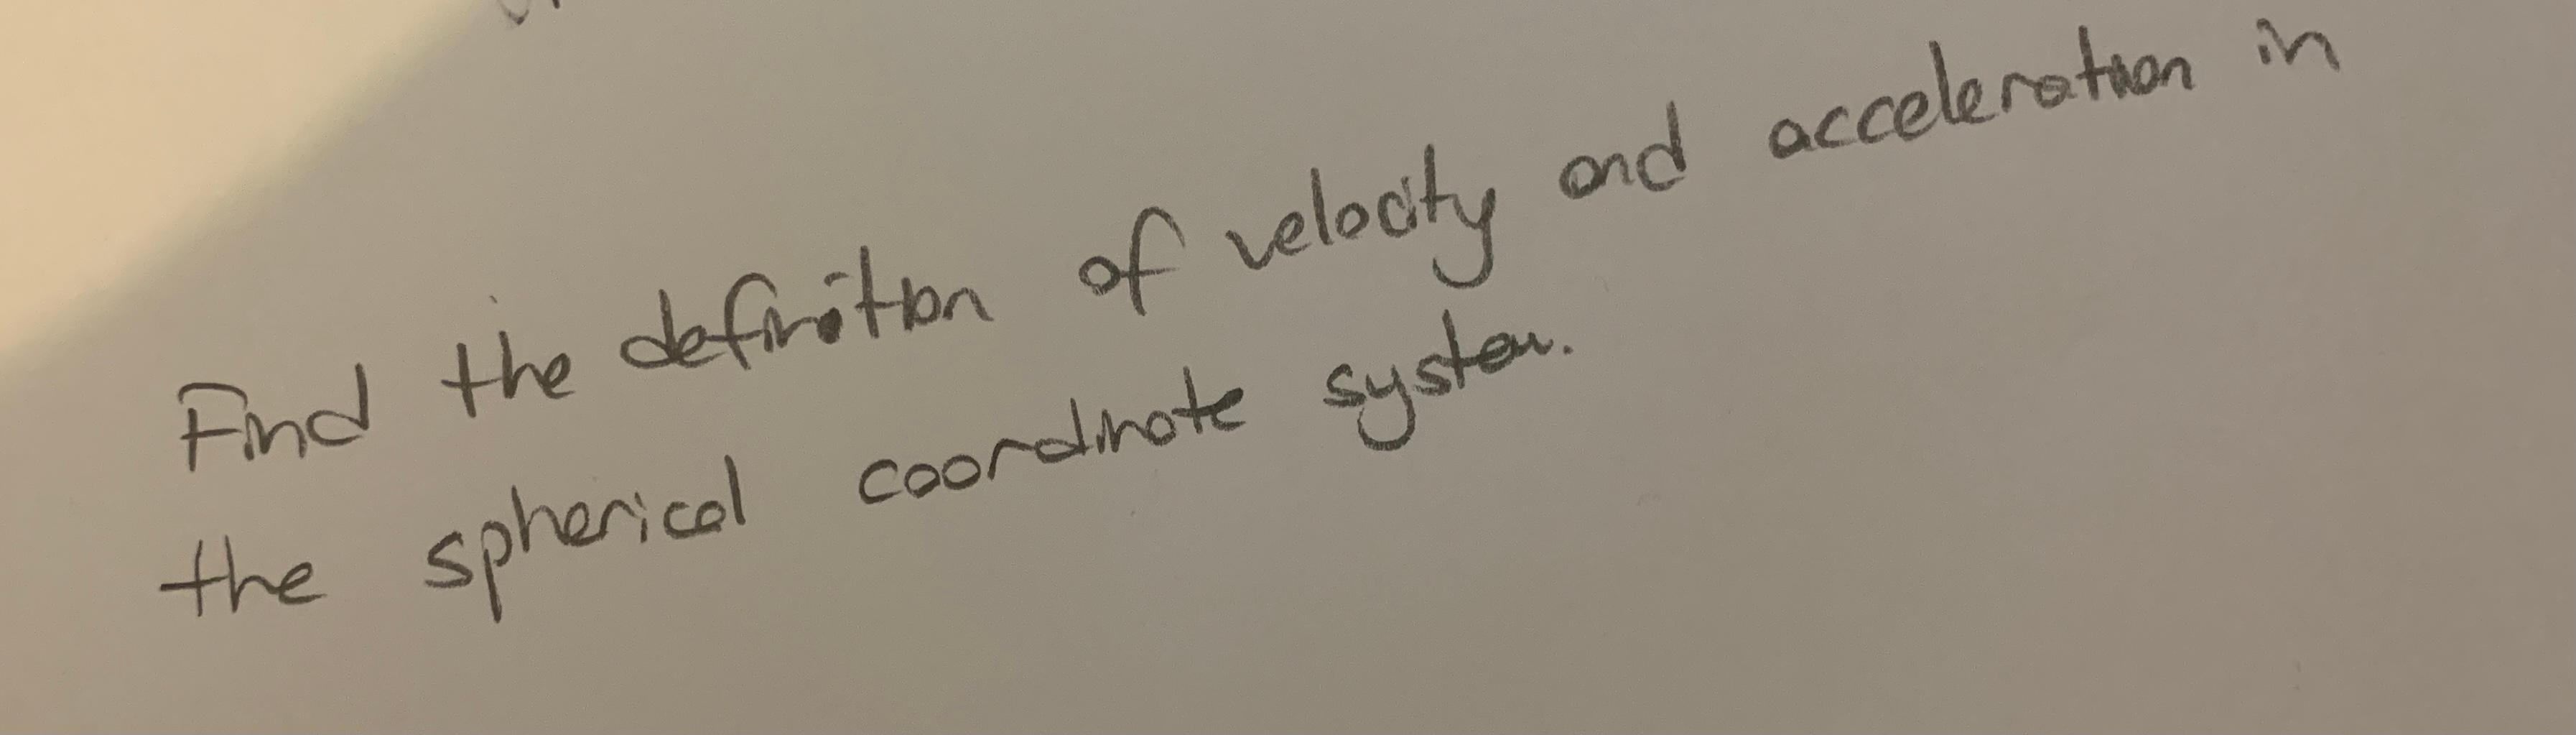 Find the definition of velocity and acceleration in
the spherical coordinate system.